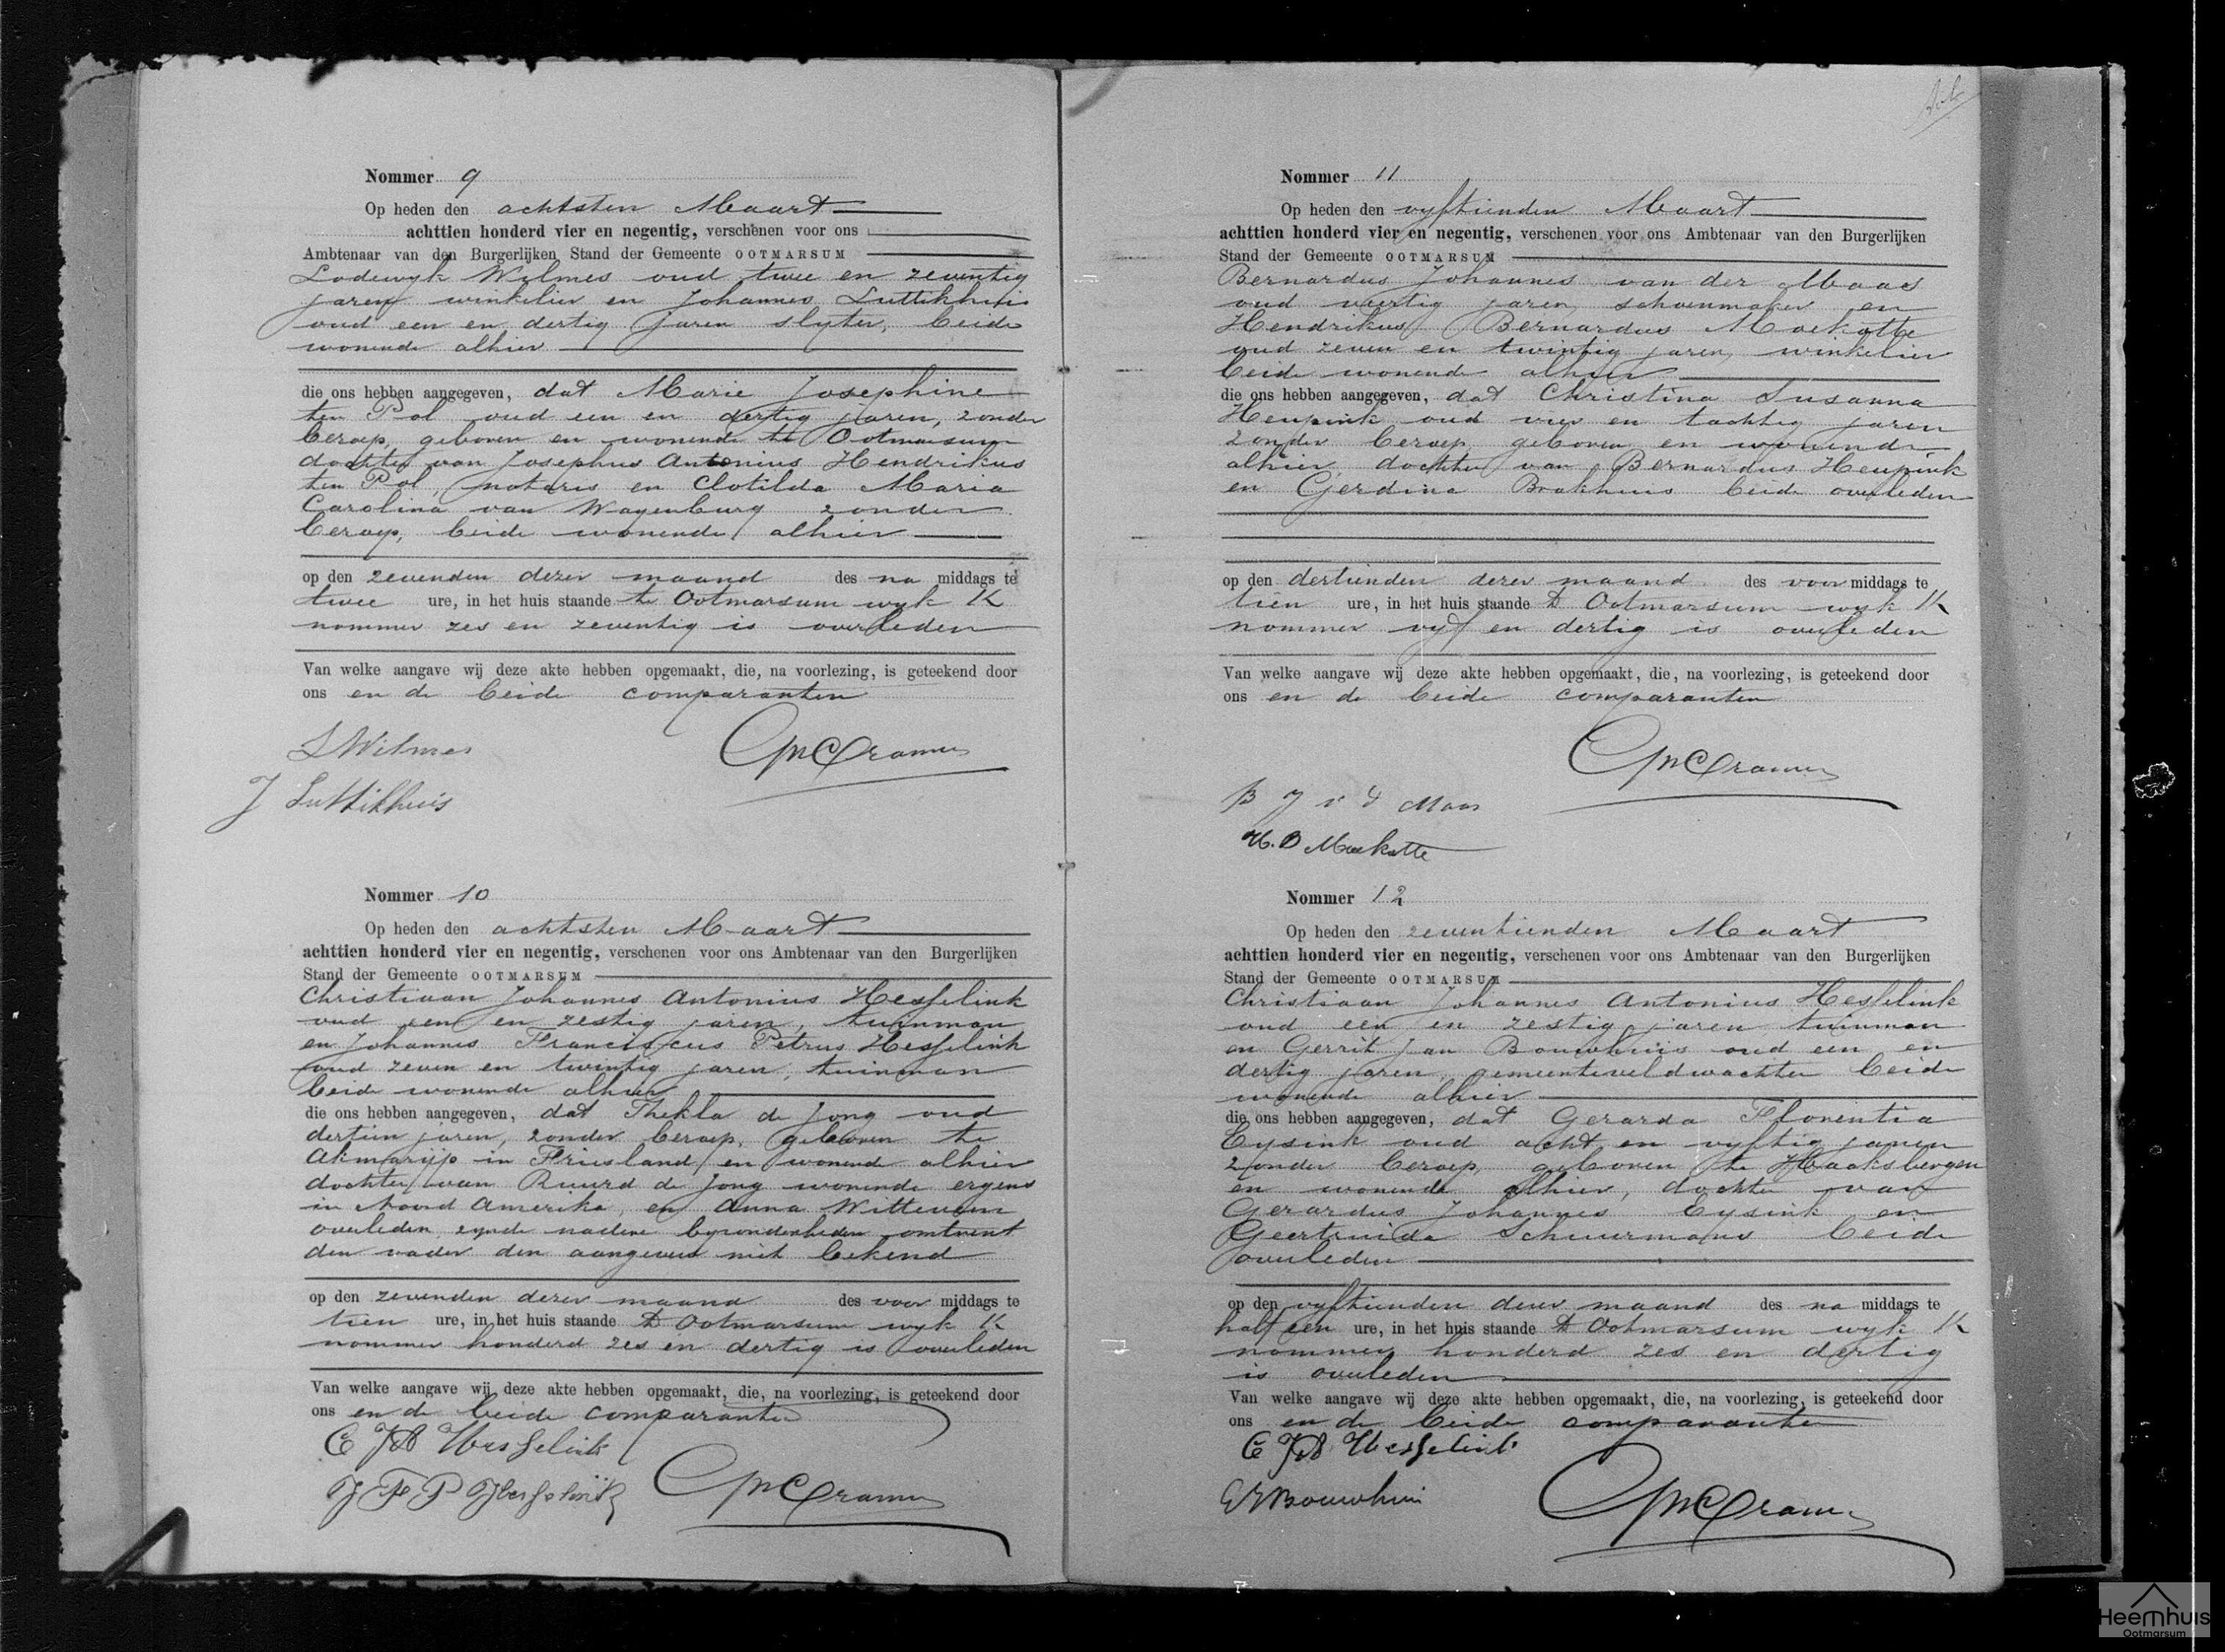 Nommer 9
Op heden den achtsten Maart
achttien honderd vier en negentig, verschenen voor ons
Ambtenaar van den Burgerlijken Stand der Gemeente OOTMARSUM
Lodewyk Wilmes oud twee en zeventig
jaren winkelier en Johannes Luttikhuis
oud een en dertig jaren slyter, beide
wonende alhier
die ons hebben aangegeven, dat Marie Josephine
ten Pol oud een en dertig jaren, zonder
beroep, geboren en wonende te Ootmarsum
dochter van Josephus Antonius Hendrikus
ten Pol, notaris en Clotilda Maria
Carolina van Wagenburg zonder
beroep, beide wonende alhier
op den zevenden dezer maand des na middags te
twee ure, in het huis staande te Ootmarsum wyk K
nommer zes en zeventig is overleden
Van welke aangave wij deze akte hebben opgemaakt, die, na voorlezing, is geteekend door
ons en de beide comparanten
L Wilmes
J Luttikhuis
Nommer 10
Op heden den achtsten Maart
achttien honderd vier en negentig, verschenen voor ons Ambtenaar van den Burgerlijken
Stand der Gemeente OOTMARSUM
Christiaan Johannes Antonius Hesselink
oud een en zestig jaren, tuinman
en Johannes Franciscus Petrus Hesselink
oud zeven en twintig jaren, tuinman
beide wonende alhier
die ons hebben aangegeven, dat Thekla de Jong oud
dertien jaren, zonder beroep, geboren te
Akmarijp in Friesland en wonende alhier
dochter van Ruurd de Jong wonende ergens
in Noord Amerika, en Anna Witteveen
overleden, zynde nadere byzonderheden omtrent
den vader den aangevers niet bekend
op den zevenden dezer maand des voor middags te
tien ure, in het huis staande te Ootmarsum wyk K
nommer honderd zes en dertig is overleden
Van welke aangave wij deze akte hebben opgemaakt, die, na voorlezing, is geteekend door
ons en de beide comparanten
C J A Hesselink
J F P Hesselink
Nommer 11
Op heden den vyftienden Maart
achttien honderd vier en negentig, verschenen voor ons Ambtenaar van den Burgerlijken
Stand der Gemeente OOTMARSUM
Bernardus Johannes van der Maas
oud veertig jaren, schoenmaker en
Hendrikus Bernardus Moekotte
oud zeven en twintig jaren, winkelier
beide wonende alhier
die ons hebben aangegeven, dat Christina Susanna
Heupink oud vier en tachtig jaren
zonder beroep, geboren en wonende
alhier, dochter van Bernardus Heupink
en Gerdina Brokhuis beide overleden
op den dertienden dezer maand des voor middags te
tien ure, in het huis staande te Ootmarsum wyk K
nommer vyf en dertig is overleden
Van welke aangave wij deze akte hebben opgemaakt, die, na voorlezing, is geteekend door
ons en de beide comparanten
B J v d Maas
H. B Moekotte
Nommer 12
Op heden den zeventienden Maart
achttien honderd vier en negentig, verschenen voor ons Ambtenaar van den Burgerlijken
Stand der Gemeente OOTMARSUM
Christiaan Johannes Antonius Hesselink
oud een en zestig jaren tuinman
en Gerrit Jan Bouwhuis oud een en
dertig jaren, gemeenteveldwachter beide
wonende alhier
die ons hebben aangegeven, dat Gerarda Florentia
Eysink oud acht en vyftig jaren
zonder beroep, geboren te Haaksbergen
en wonende alhier, dochter van
Gerardus Johannes Eysink en
Geertruida Schuurmans beide
overleden
op den vyftienden dezer maand des na middags te
half een ure, in het huis staande te Ootmarsum wyk K
nommer honderd zes en dertig
is overleden
Van welke aangave wij deze akte hebben opgemaakt, die, na voorlezing, is geteekend door
ons en de beide comparanten
C J A Hesselink
Bouwhuis
Heemhuis
Ootmarsum